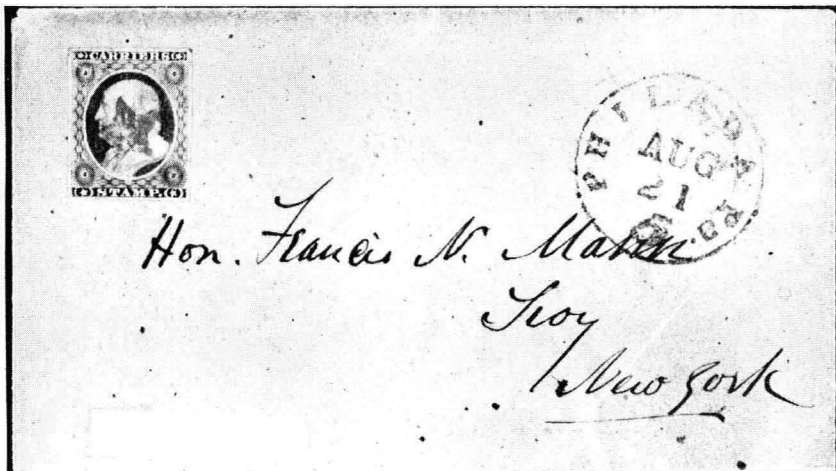 CARRIERS
STAMP
PHILADA. PA
AUG
21
Hon. Francis N. Mann
Troy
New York